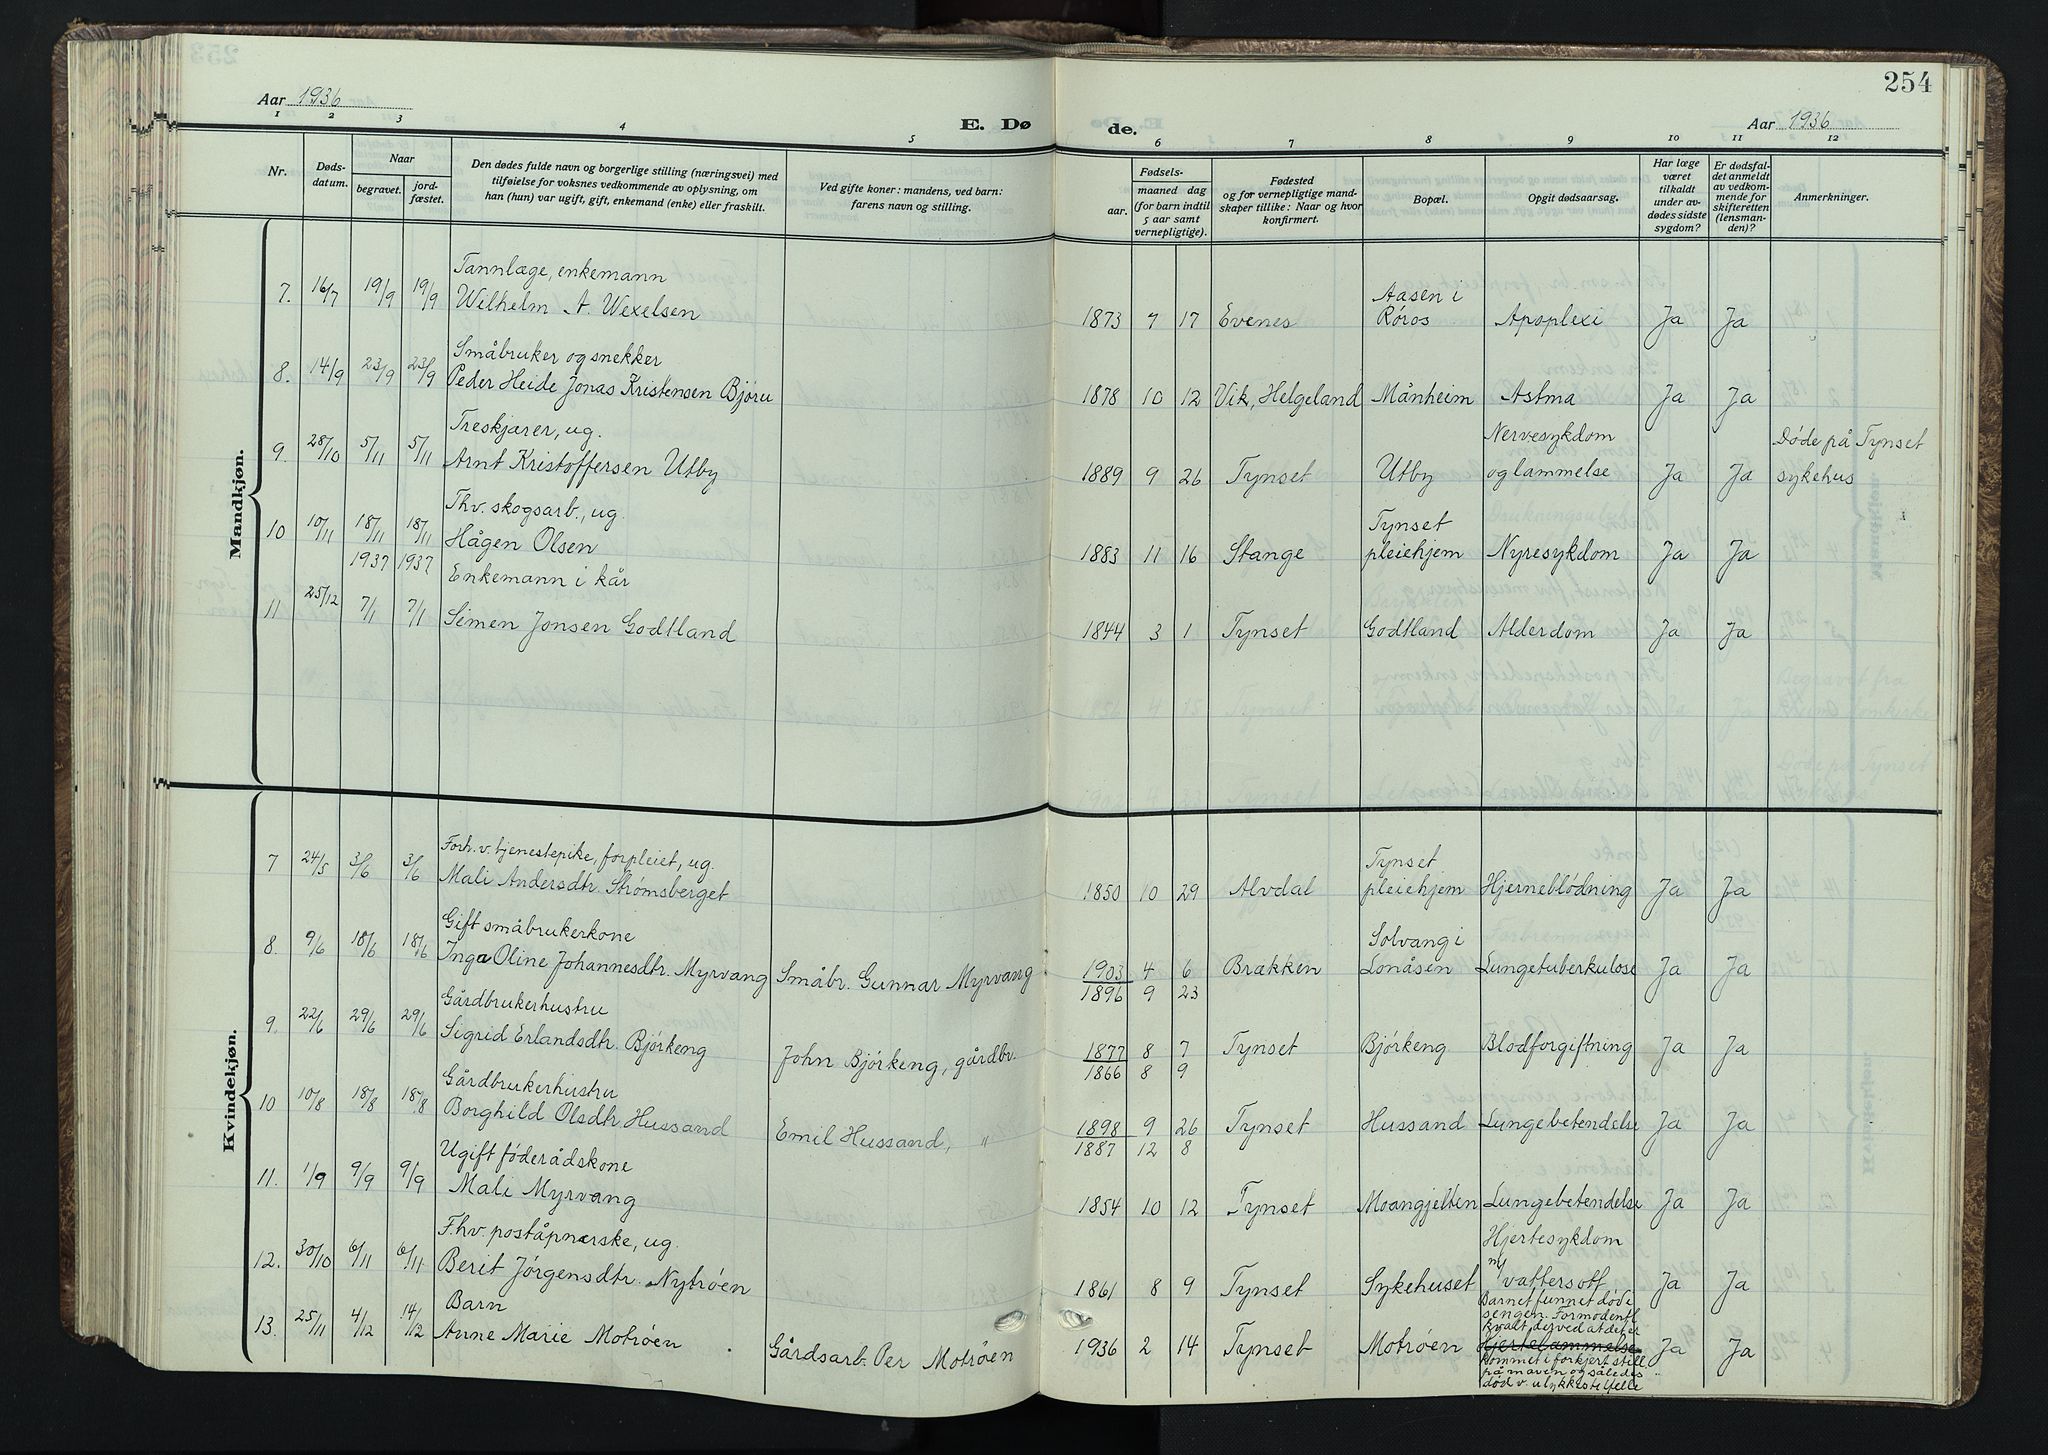 254
Aar 1936
E. Døde.
Aar 1936
1 2 3 4 5 6 7 8 9 10 11 12
Nr.
Døds-
datum.
Naar
begravet.
jord-
fæstet.
Den dødes fulde navn og borgerlige stilling (næringsvei) med
tilføielse for voksnes vedkommende av oplysning, om
han (hun) var ugift, gift, enkemand (enke) eller fraskilt.
Ved gifte koner: mandens, ved barn:
farens navn og stilling.
Fødsels-
aar.
maaned dag
(for barn indtil
5 aar samt
vernepligtige).
Fødested
og for vernepligtige mand-
skaper tillike: Naar og hvor
konfirmert.
Bopæl.
Opgit dødsaarsag.
Har læge
været
tilkaldt
under av-
dødes sidste
sygdom?
Er dødsfal-
det anmeldt
av vedkom-
mende for
skifteretten
(lensman-
den)?
Anmerkninger.
Mandkjøn.
Tannlæge, enkemann Aasen i
7. 16/7 19/9 19/9 Wilhelm A. Wexelsen 1873 7 17 Evenes Røros Apoplexi Ja Ja
Småbruker og snekker
8. 14/9 23/9 23/9 Peder Heide Jonas Kristensen Bjøru 1878 10 12 Vik, Helgeland Månheim Astma Ja Ja
Treskjærer, ug. Nervesykdom Døde på Tynset
9. 28/10 5/11 5/11 Arnt Kristoffersen Utby 1889 9 26 Tynset Utby og lammelse Ja Ja sykehus
Fhv. skogsarb., ug. Tynset
10 10/11 18/11 18/11 Hågen Olsen 1883 11 16 Stange pleiehjem Nyresykdom Ja Ja
1937 1937 Enkemann i kår
11 25/12 7/1 7/1 Simen Jonsen Godtland 1844 3 1 Tynset Godtland Alderdom Ja Ja
Kvindekjøn.
Forh.v. tjenestepike, forpleiet, ug. Tynset
7 24/5 3/6 3/6 Mali Andersdtr. Strømsberget 1850 10 29 Alvdal pleiehjem Hjerneblødning Ja Ja
Gift småbrukerkone Solvang i
8. 9/6 18/6 18/6 Inga Oline Johannesdtr. Myrvang Småbr. Gunnar Myrvang 1903 4 6 Brækken Lonåsen Lungetuberkulose Ja Ja
1896 9 23
Gårdbrukerhustru
9. 22/6 29/6 29/6 Sigrid Erlandsdtr. Bjørkeng John Bjørkeng, gårdbr. 1877 8 7 Tynset Bjørkeng Blodforgiftning Ja Ja
1866 8 9
Gårdbrukerhustru
10 10/8 18/8 18/8 Borghild Olsdtr. Hussand Emil Hussand, " 1898 9 26 Tynset Hussand Lungebetendelse Ja Ja
1887 12 8
Ugift føderådskone
11. 1/9 9/9 9/9 Mali Myrvang 1854 10 12 Tynset Moangjelten Lungebetendelse Ja Ja
F.hv. poståpnerske, ug. Hjertesykdom
12. 30/10 6/11 6/11 Berit Jørgensdtr. Nytrøen 1861 8 9 Tynset Sykehuset m/ vattersott Ja Ja
Barn
13. 25/11 4/12 14/12 Anne Marie Motrøen Gårdsarb. Per Motrøen 1936 2 14 Tynset Motrøen Ja Ja
Barnet funnet død i
sengen. Formodentl.
kvalt derved at det er
Hjertelammelse
kommet i forkjert still.
på maven og således
død v. ulykkestilfelle